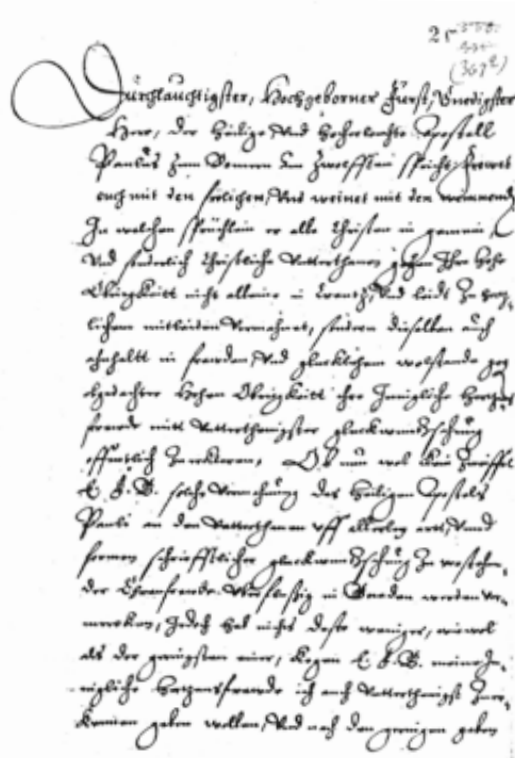 25
(369²)
Durchlauchtigster, Hochgeborner Fürst, Gnedigster
Herr, der Heilige vnd Hocherleuchte Apostell
Paulus zun Römern am zwelfften spricht: Frewet
euch mit den frölichen, vnd weinet mit den weinenden
In welchen sprüchlein er alle Christen in gemein,
vnd sonderlich Christliche vnterthanen gegen Ihre hohe
Obrigkeitt nicht alleine in Creutz vnd leidt zu hertz-
lichem mitleiden vermahnet, sondern dieselben auch
anheltt in frewden vnd glücklichem wolstande gegen
obgedachter hohen Obrigkeitt ihre Innigliche hertzens
frewde mitt vnterthenigster glückwundschung
offentlich zu erkleren, Ob nun wol kein zweiffel
E. F. G. solche vermahnung des heiligen Apostels
Pauli an den vnterthanen vff allerley artt vnnd
formen schrifftlicher glückwundschung zu verstehen,
der Ehrenfreude vberflüssig in Gnaden werden ver-
mercken, Jedoch hab nichts desto weniger, wiewol
als der geringsten einer, kegen E. F. G. meine In-
nigliche hertzensfrewde ich auch vnterthenigst zuer-
kennen geben wollen, vnd nach den geringen gaben